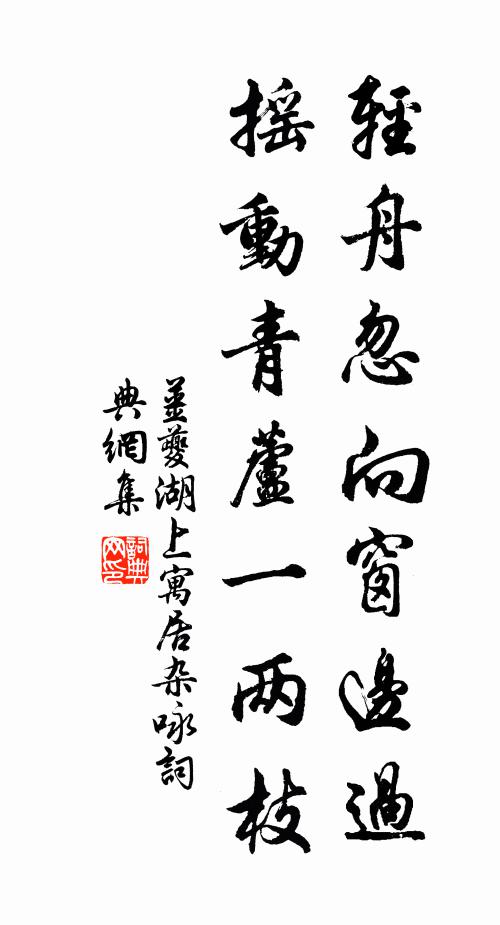 輕舟忽向窗邊過
搖動青蘆一兩枝
姜夔湖上寓居杂咏詞
典網集
詞典网印